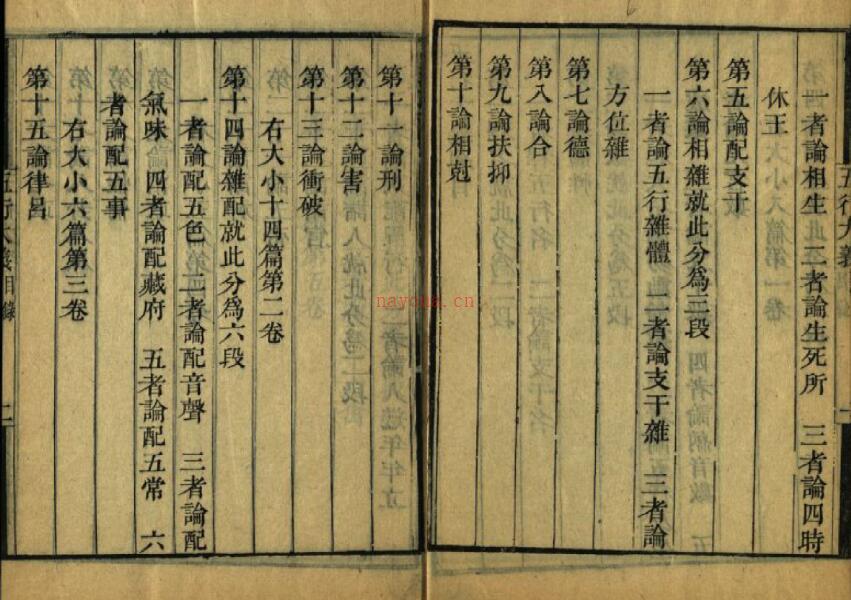 一者論相生　二者論生死所　三者論四時
休王
第五論配支干
第六論相雜就此分爲三段
一者論五行雜體　二者論支干雜　三者論
方位雜
第七論德
第八論合
第九論扶抑
第十論相尅
第十一論刑
第十二論害
第十三論衝破
右大小十四篇第二卷
第十四論雜配就此分爲六段
一者論配五色　二者論配音聲　三者論配
氣味　四者論配藏府　五者論配五常　六
者論配五事
右大小六篇第三卷
第十五論律呂
五行大義目錄
二
nayona.cn